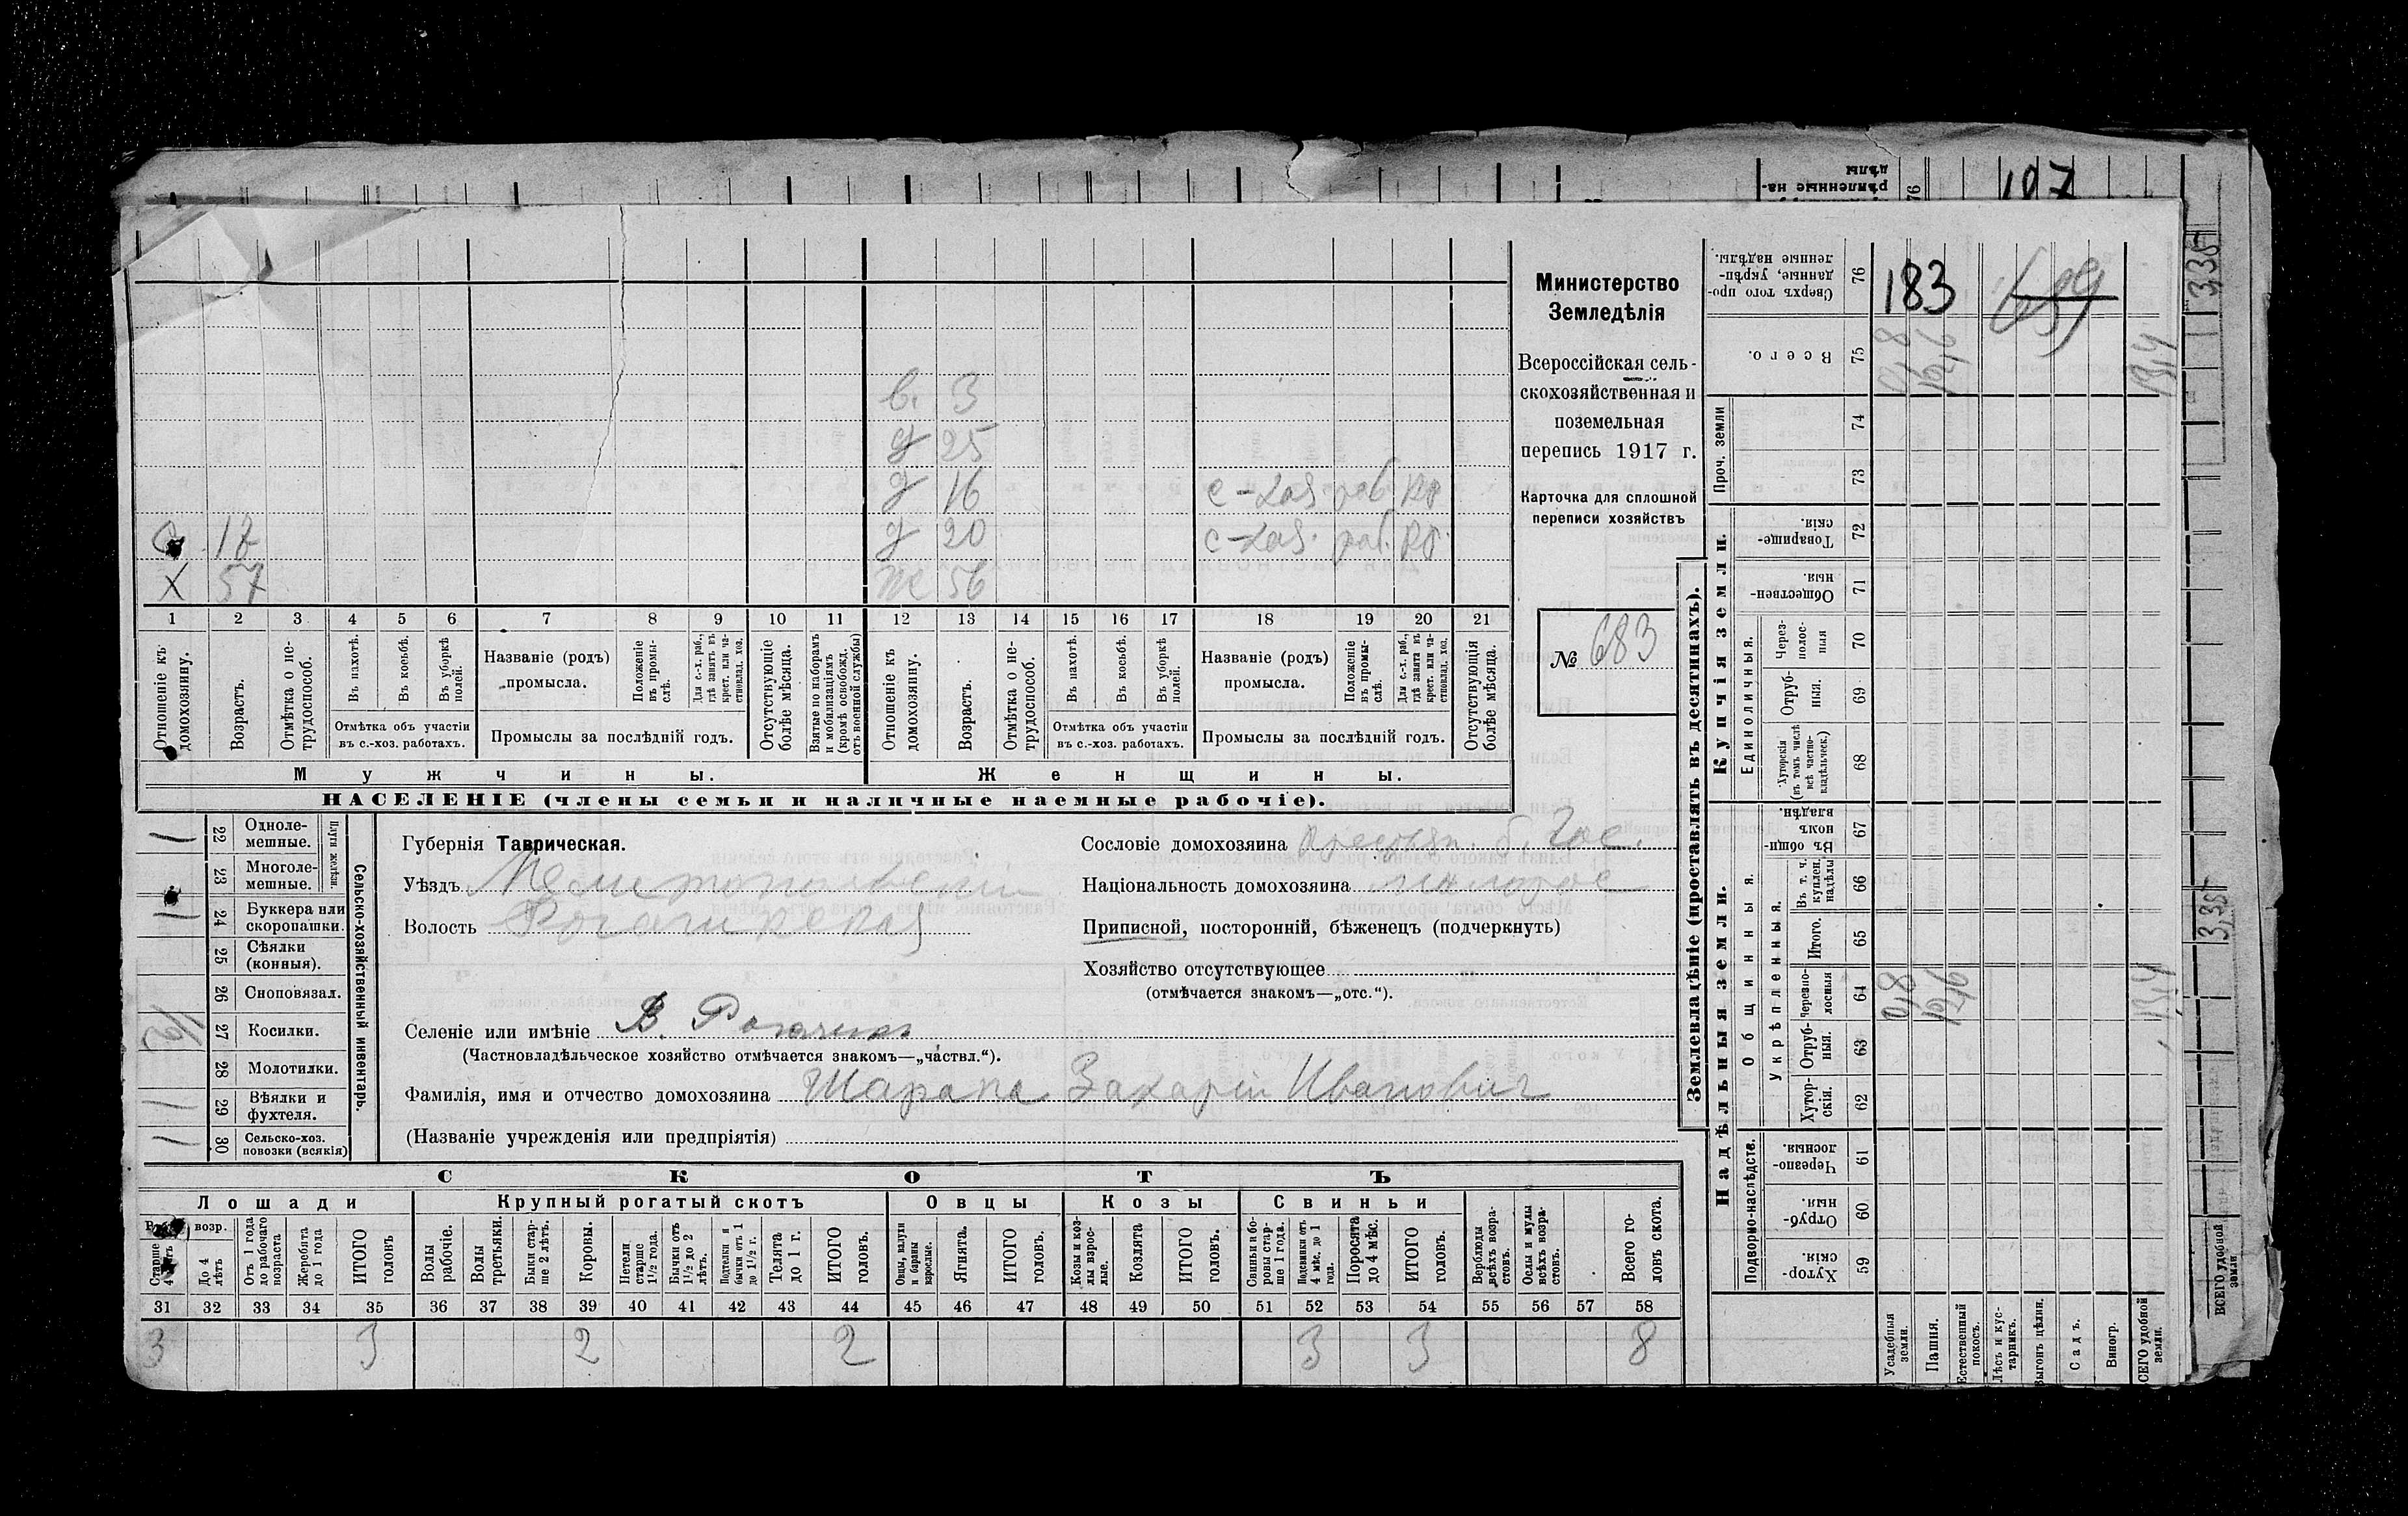 183
в. 3
д 25
д 16 с-хоз. раб. кр.
17 д 20 с-хоз. раб. кр.
Х 57 ж 56
1 2 3 4 5 6 7 8 9 10 11 12 13 14 15 16 17 18 19 20 21
Отношеніе къ домохозяину.
Возрастъ.
Отмѣтка о нетрудоспособ.
Въ пахотѣ.
Въ косьбѣ.
Въ уборкѣ полей.
Отмѣтка объ участіи въ с.-хоз. работахъ.
Названіе (родъ) промысла.
Положеніе въ промыслѣ.
Для с.-х. раб., гдѣ занятъ въ крест. или частновлад. хоз.
Промыслы за послѣдній годъ.
Отсутствующіе болѣе мѣсяца.
Взятые по наборамъ и мобилизаціямъ (кромѣ освобожд. отъ военной службы)
Отношеніе къ домохозяину.
Возрастъ.
Отмѣтка о нетрудоспособ.
Въ пахотѣ.
Въ косьбѣ.
Въ уборкѣ полей.
Отмѣтка объ участіи въ с.-хоз. работахъ.
Названіе (родъ) промысла.
Положеніе въ промыслѣ.
Для с.-х. раб., гдѣ занята въ крест. или частновлад. хоз.
Промыслы за послѣдній годъ.
Отсутствующія болѣе мѣсяца.
Мужчины.
Женщины.
НАСЕЛЕНІЕ (члены семьи и наличные наемные рабочіе).
Министерство
Земледѣлія
Всероссійская сель-
скохозяйственная и
поземельная
перепись 1917 г.
Карточка для сплошной
переписи хозяйствъ
№ 683
Сельско-хозяйственный инвентарь.
Плуги желѣзн.
1 22 Одноле-мешные.
23 Многоле-мешные.
1 24 Буккера или скоропашки.
25 Сѣялки (конныя).
26 Сноповязал.
1/2 27 Косилки.
28 Молотилки.
1 29 Вѣялки и фухтеля.
1 30 Сельско-хоз. повозки (всякія)
Губернія Таврическая.
Уѣздъ Мелитопольскій
Волость Рогачикская
Селеніе или имѣніе В. Рогачик
(Частновладѣльческое хозяйство отмѣчается знакомъ—„частвл.“).
Фамилія, имя и отчество домохозяина Шарапа Захарій Иванович
(Названіе учрежденія или предпріятія)
Сословіе домохозяина крестьян. б. Гос.
Національность домохозяина малорос
Приписной, посторонній, бѣженецъ (подчеркнуть)
Хозяйство отсутствующее
(отмѣчается знакомъ—„отс.“).
СКОТЪ
Лошади
Крупный рогатый скотъ
Овцы
Козы
Свиньи
возр.
До 4 лѣтъ
Отъ 1 года до рабочаго возраста
Жеребята до 1 года
ИТОГО головъ
Волы рабочіе.
Волы третьяки.
Быки старше 2 лѣтъ.
Коровы.
Нетели старше 1½ года.
Бычки отъ 1½ до 2 лѣтъ.
Подтелки и бычки отъ 1 до 1½ г.
Телята до 1 г.
ИТОГО головъ.
Овцы, валухи и бараны взрослые.
Ягнята.
ИТОГО головъ.
Козы и козлы взрослые.
Козлята
ИТОГО головъ.
Свиньи и боровы старше 1 года.
Подсвинки отъ 4 мѣс. до 1 года.
Поросята до 4 мѣс.
ИТОГО головъ.
Верблюды всѣхъ возрастовъ.
Ослы и мулы всѣхъ возрастовъ.
Всего головъ скота.
31 32 33 34 35 36 37 38 39 40 41 42 43 44 45 46 47 48 49 50 51 52 53 54 55 56 57 58
3 3 2 2 3 3 8
Землевладѣніе (проставлять въ десятинахъ).
Надѣльныя земли.
Купчія земли.
Проч. земли
Подворно-наслѣдств.
Общинныя.
Укрѣпленныя.
Единоличныя.
Хуторскія. 59
Отрубныя. 60
Черезполосныя. 61
Хуторскія. 62
Отрубныя. 63
Черезполосныя 64
Итого. 65
Въ т. ч. куплен. надѣлы 66
Въ общинномъ владѣн. 67
Хуторскія (въ томъ числѣ всѣ частновладѣльческ.) 68
Отрубныя. 69
Черезполосныя 70
Общественныя. 71
Товарищескія. 72
73
74
Всего. 75
Сверхъ того проданные, укрѣпленные надѣлы. 76
Усадебныя земли.
Пашня.
Естественный покосъ.
Лѣсъ и кустарникъ.
Выгонъ цѣлин.
Садъ.
Виногр.
ВСЕГО удобной земли.
ВСЕГО удобной земли
3,35
3,35